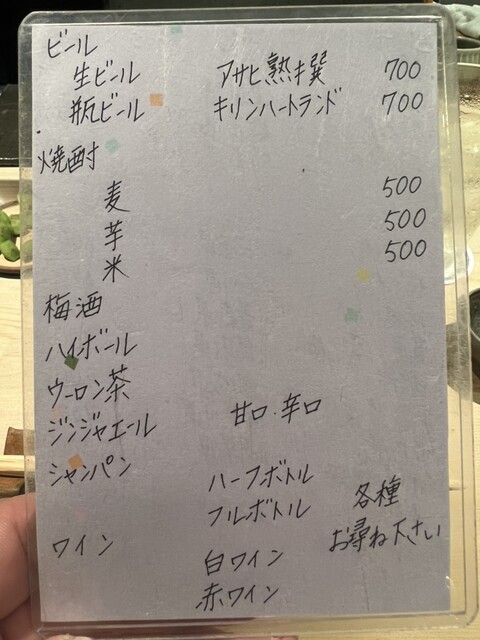 ビール
生ビール アサヒ熟撰 700
瓶ビール キリンハートランド 700
焼酎
麦 500
芋 500
米 500
梅酒
ハイボール
ウーロン茶
ジンジャエール 甘口・辛口
シャンパン ハーフボトル
フルボトル 各種
お尋ね下さい
ワイン 白ワイン
赤ワイン